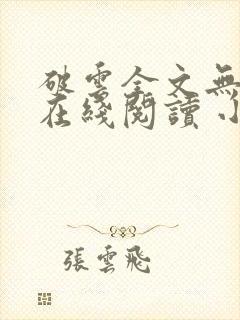 破雲全文無
在綫閱讀 小
張雲飛